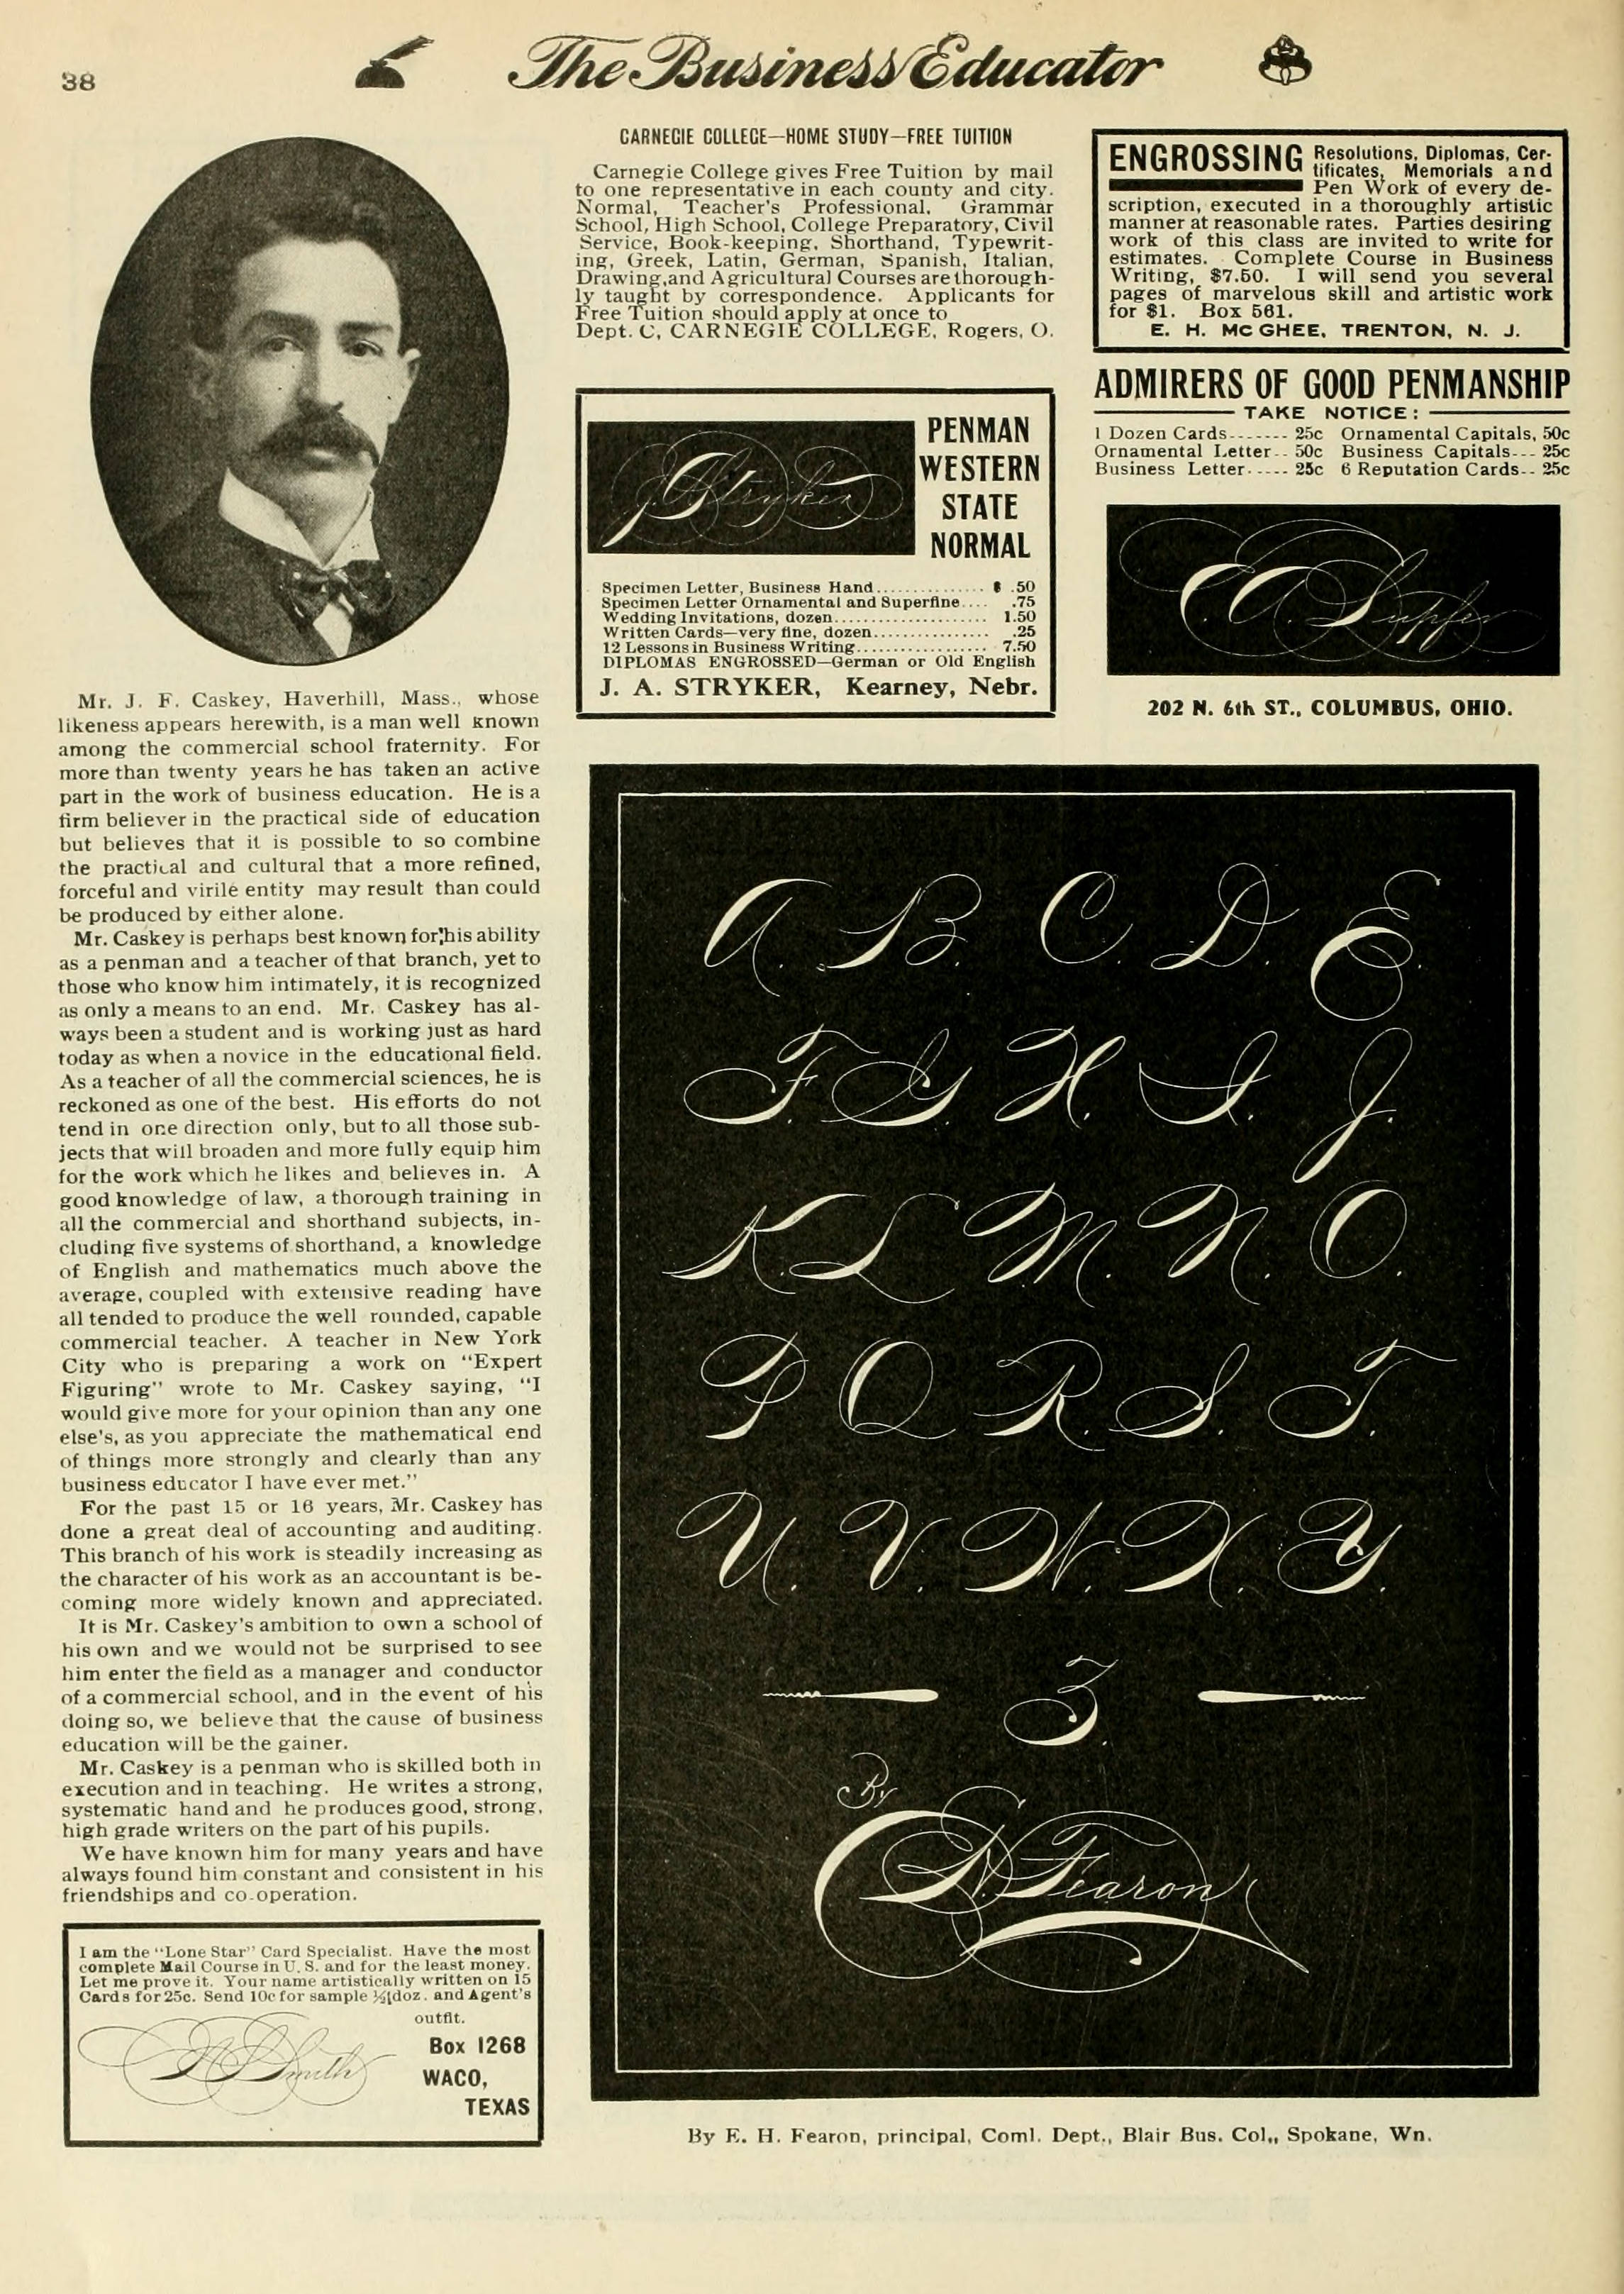 38
The Business Educator
Mr. J. F. Caskey, Haverhill, Mass., whose
likeness appears herewith, is a man well known
among the commercial school fraternity. For
more than twenty years he has taken an active
part in the work of business education. He is a
firm believer in the practical side of education
but believes that it is possible to so combine
the practical and cultural that a more refined,
forceful and virile entity may result than could
be produced by either alone.
Mr. Caskey is perhaps best known for his ability
as a penman and a teacher of that branch, yet to
those who know him intimately, it is recognized
as only a means to an end. Mr. Caskey has al-
ways been a student and is working just as hard
today as when a novice in the educational field.
As a teacher of all the commercial sciences, he is
reckoned as one of the best. His efforts do not
tend in one direction only, but to all those sub-
jects that will broaden and more fully equip him
for the work which he likes and believes in. A
good knowledge of law, a thorough training in
all the commercial and shorthand subjects, in-
cluding five systems of shorthand, a knowledge
of English and mathematics much above the
average, coupled with extensive reading have
all tended to produce the well rounded, capable
commercial teacher. A teacher in New York
City who is preparing a work on "Expert
Figuring" wrote to Mr. Caskey saying, "I
would give more for your opinion than any one
else's, as you appreciate the mathematical end
of things more strongly and clearly than any
business educator I have ever met."
For the past 15 or 16 years, Mr. Caskey has
done a great deal of accounting and auditing.
This branch of his work is steadily increasing as
the character of his work as an accountant is be-
coming more widely known and appreciated.
It is Mr. Caskey's ambition to own a school of
his own and we would not be surprised to see
him enter the field as a manager and conductor
of a commercial school, and in the event of his
doing so, we believe that the cause of business
education will be the gainer.
Mr. Caskey is a penman who is skilled both in
execution and in teaching. He writes a strong,
systematic hand and he produces good, strong,
high grade writers on the part of his pupils.
We have known him for many years and have
always found him constant and consistent in his
friendships and co-operation.
I am the "Lone Star" Card Specialist. Have the most
complete Mail Course in U. S. and for the least money.
Let me prove it. Your name artistically written on 15
Cards for 25c. Send 10c for sample ½ doz. and Agent's
outfit.
Smith
Box 1268
WACO,
TEXAS
CARNEGIE COLLEGE—HOME STUDY—FREE TUITION
Carnegie College gives Free Tuition by mail
to one representative in each county and city.
Normal, Teacher's Professional, Grammar
School, High School, College Preparatory, Civil
Service, Book-keeping, Shorthand, Typewrit-
ing, Greek, Latin, German, Spanish, Italian,
Drawing, and Agricultural Courses are thorough-
ly taught by correspondence. Applicants for
Free Tuition should apply at once to
Dept. C, CARNEGIE COLLEGE, Rogers, O.
J. A. Stryker
PENMAN
WESTERN
STATE
NORMAL
Specimen Letter, Business Hand............... $ .50
Specimen Letter Ornamental and Superfine.... .75
Wedding Invitations, dozen...................... 1.50
Written Cards—very fine, dozen................ .25
12 Lessons in Business Writing.................. 7.50
DIPLOMAS ENGROSSED—German or Old English
J. A. STRYKER, Kearney, Nebr.
ENGROSSING Resolutions, Diplomas, Cer-
tificates, Memorials and
Pen Work of every de-
scription, executed in a thoroughly artistic
manner at reasonable rates. Parties desiring
work of this class are invited to write for
estimates. Complete Course in Business
Writing, $7.50. I will send you several
pages of marvelous skill and artistic work
for $1. Box 561.
E. H. McGHEE, TRENTON, N. J.
ADMIRERS OF GOOD PENMANSHIP
TAKE NOTICE:
1 Dozen Cards------- 25c Ornamental Capitals, 50c
Ornamental Letter-- 50c Business Capitals--- 25c
Business Letter----- 25c 6 Reputation Cards-- 25c
E. A. Lupfer
202 N. 6th ST., COLUMBUS, OHIO.
A. B. C. D. E.
F. G. H. I. J.
K. L. M. N. O.
P. Q. R. S. T.
U. V. W. X. Y.
Z.
By
E. H. Fearon
By E. H. Fearon, principal, Coml. Dept., Blair Bus. Col., Spokane, Wn.